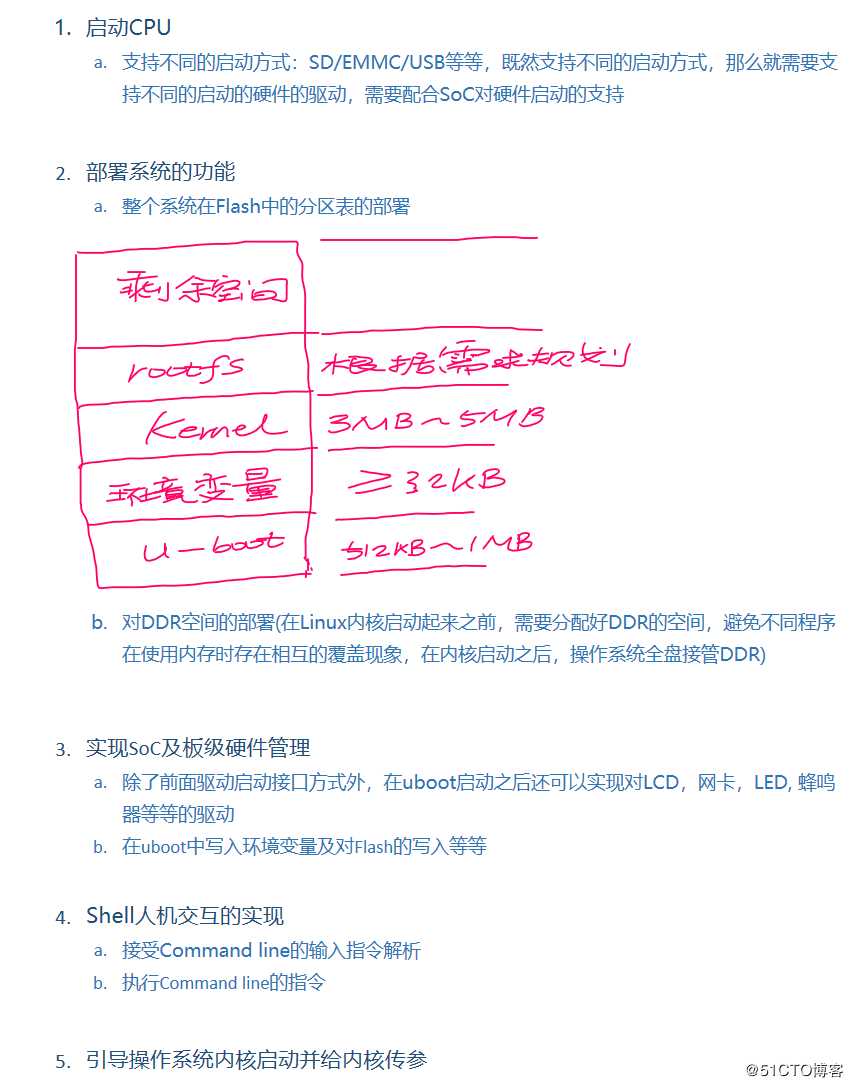 1. 启动CPU
a. 支持不同的启动方式：SD/EMMC/USB等等，既然支持不同的启动方式，那么就需要支
持不同的启动的硬件的驱动，需要配合SoC对硬件启动的支持
2. 部署系统的功能
a. 整个系统在Flash中的分区表的部署
剩余空间
rootfs 根据需求规划
Kernel 3MB~5MB
环境变量 ≥32KB
u-boot 512KB~1MB
b. 对DDR空间的部署(在Linux内核启动起来之前，需要分配好DDR的空间，避免不同程序
在使用内存时存在相互的覆盖现象，在内核启动之后，操作系统全盘接管DDR)
3. 实现SoC及板级硬件管理
a. 除了前面驱动启动接口方式外，在uboot启动之后还可以实现对LCD，网卡，LED, 蜂鸣
器等等的驱动
b. 在uboot中写入环境变量及对Flash的写入等等
4. Shell人机交互的实现
a. 接受Command line的输入指令解析
b. 执行Command line的指令
5. 引导操作系统内核启动并给内核传参
@51CTO博客